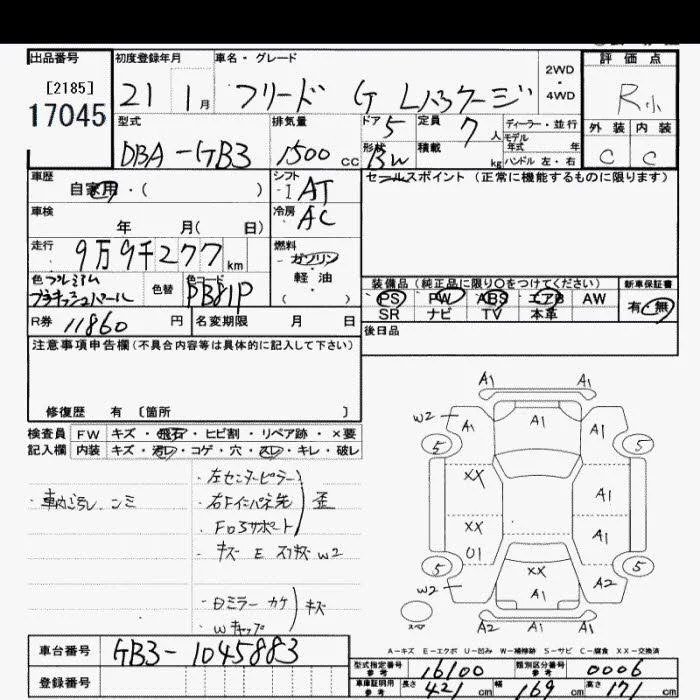 出品番号 初度登録年月 車名・グレード 評価点
[2185] 21 1月 フリード G Lパッケージ 2WD・4WD R小
17045
型式 排気量 ドア 5 定員 7人 ディーラー・並行 外装 内装
DBA-GB3 1500cc 形状 BW 積載 kg モデル年式 年 C C
ハンドル 左・右
車歴 シフト セールスポイント (正常に機能するものに限ります)
自家用・( ) I AT
車検 冷房
年 月( 日) AC
走行 燃料
9万9千277km ガソリン
軽油
( )
色 プレミアム 色替 色コード 装備品 (純正品に限り○をつけてください) 新車保証書
パール PB81P PS PW ABS エアB AW 有・無
SR ナビ TV 本革
R券 11860円 名変期限 月 日 後日品
注意事項申告欄(不具合内容等は具体的に記入して下さい)
修復歴 有 〔箇所 〕
検査員 FW キズ・飛石・ヒビ割・リペア跡・×要
記入欄 内装 キズ・汚レ・コゲ・穴・スレ・キレ・破レ
・左センターピラー
・右Fインパネ先 歪
・FロSサポート
・キズ E スリキズ W2
・ロミラー カケ キズ
・Wキャップ
A1 A1
W2 A1 A1 A1
5 5
XX A1
XX A1
01
5 5
XX
W2 A1 A2
A2 A1 A1
A-キズ E-エクボ U-凹み W-補修跡 S-サビ C-腐食 XX-交換済
車台番号 GB3-1045883
登録番号
型式指定番号 参考 16100 類別区分番号 参考 0006
車庫証明用 参考 長さ 421cm 幅 169cm 高さ 171cm